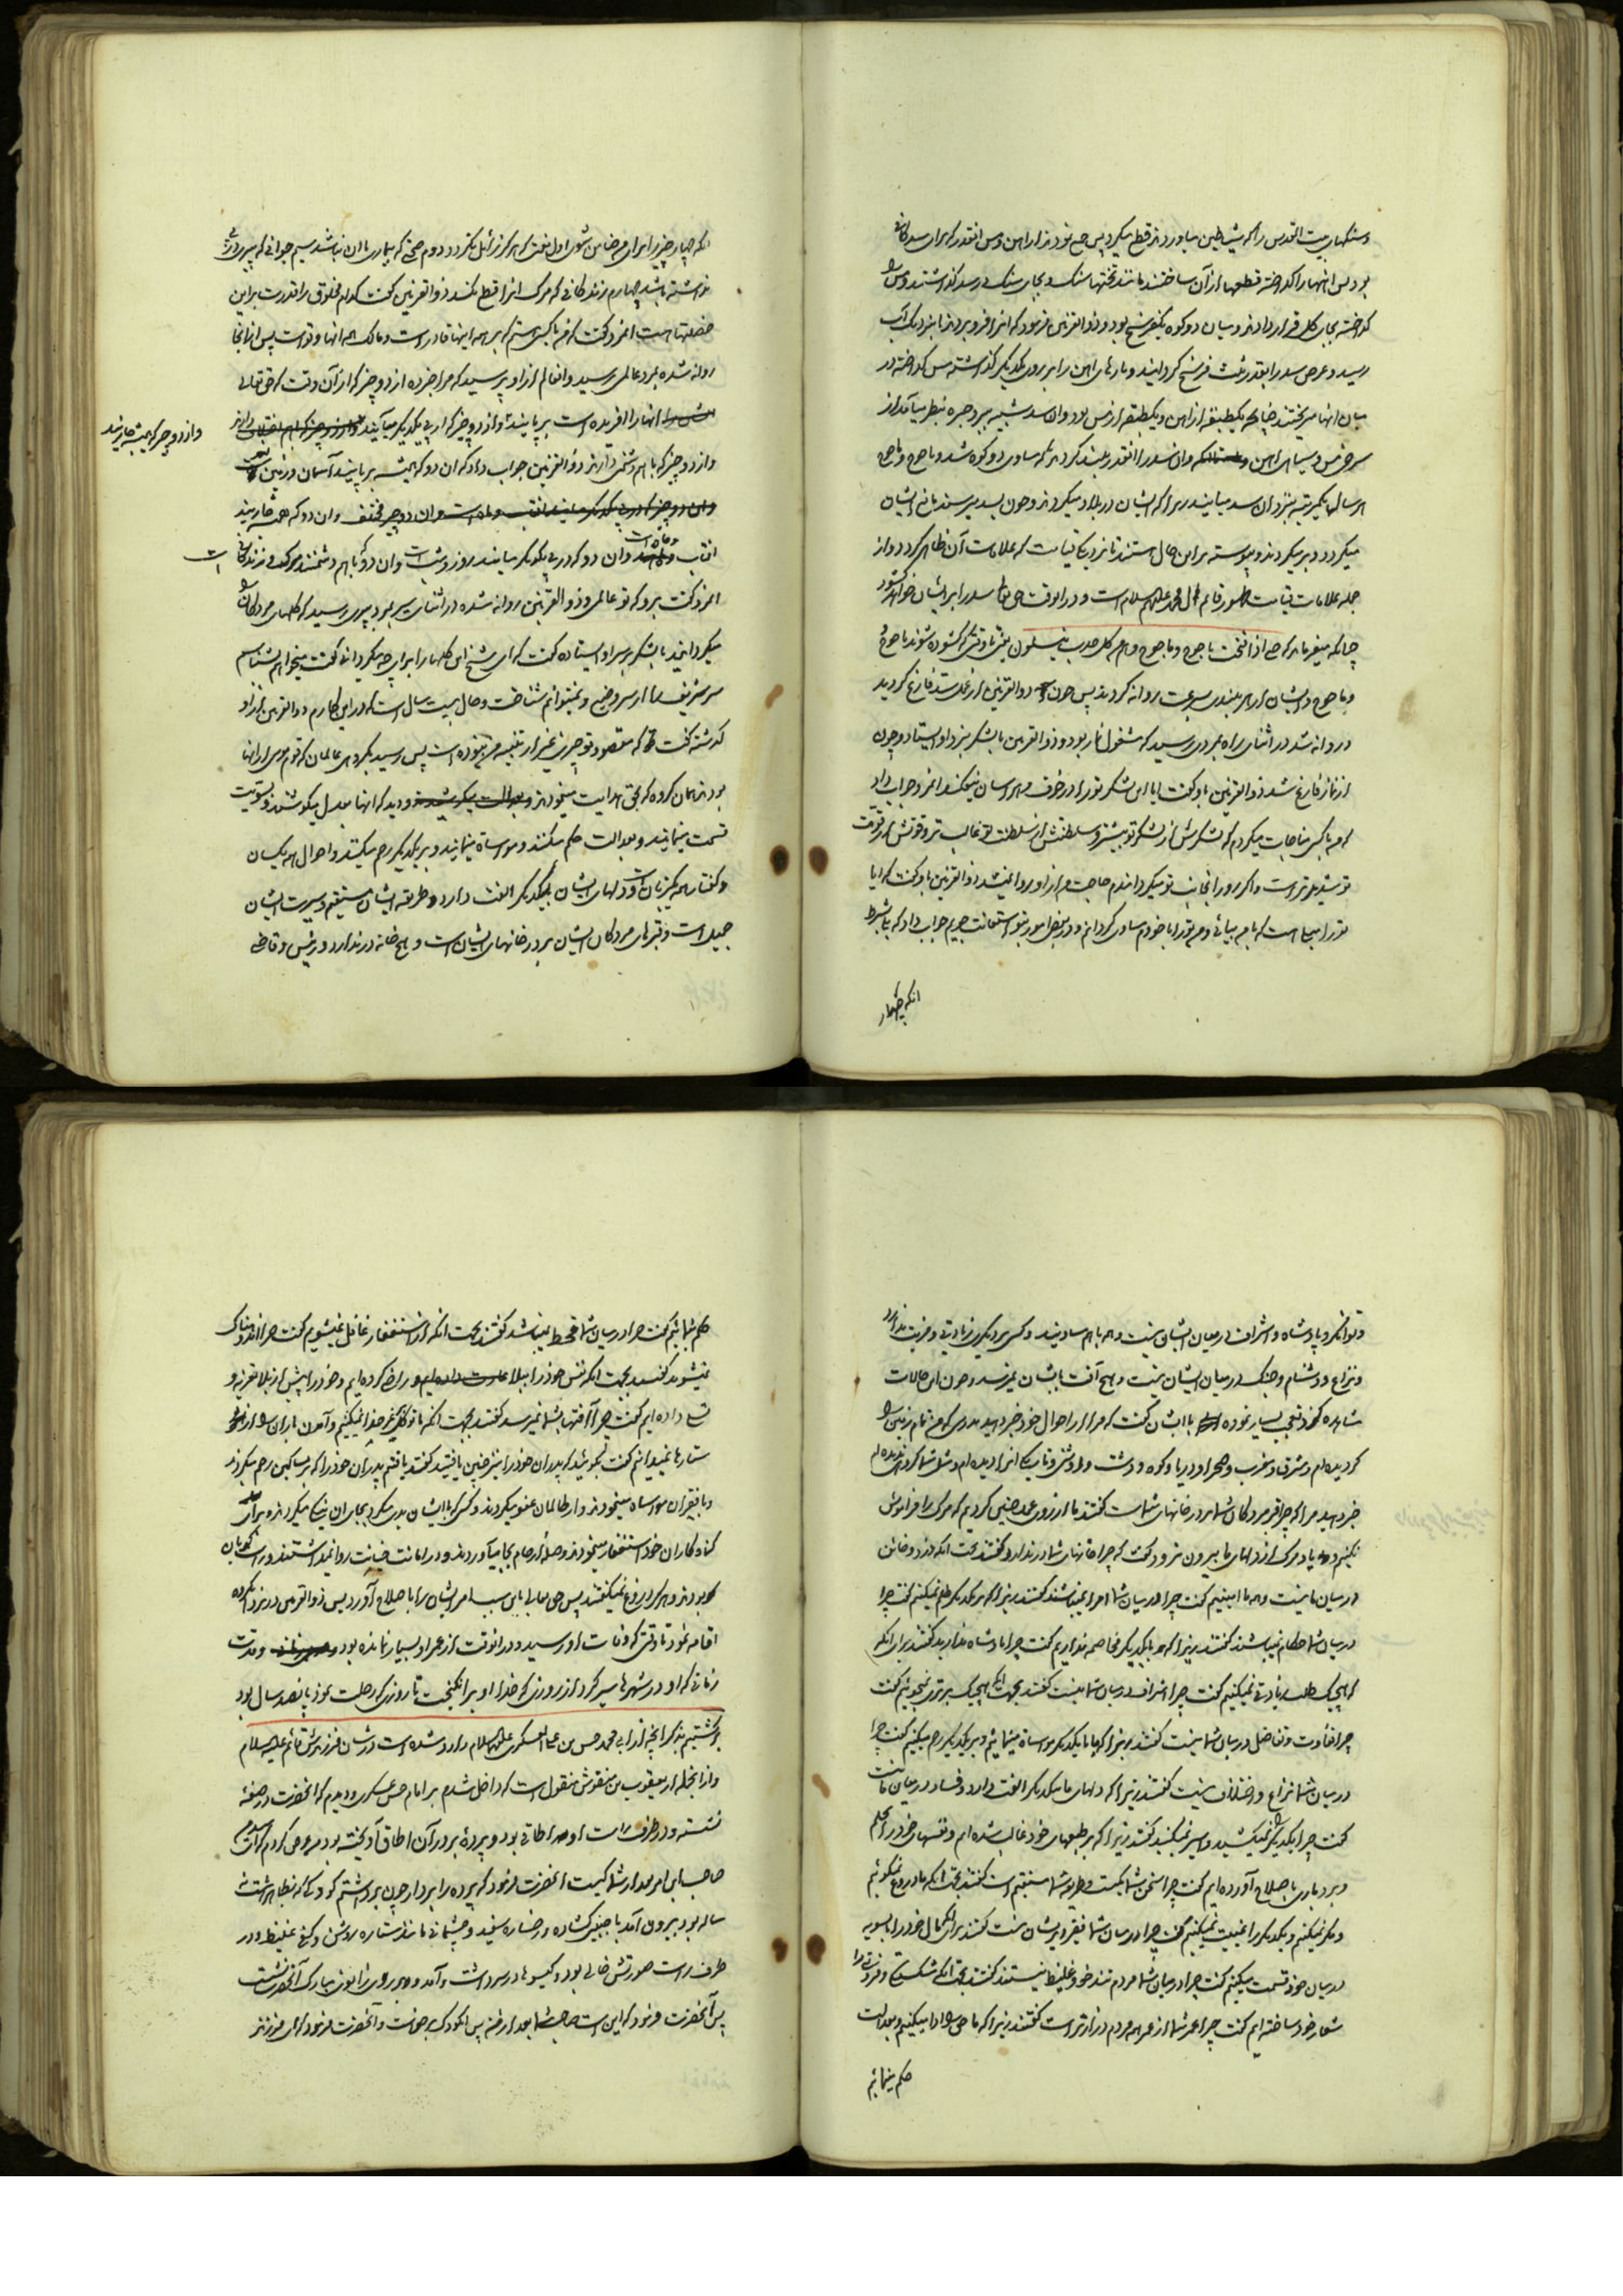 و سنگهای بیت المقدس را که شیاطین میاوردند قطع میکرد پس جمع نمودند از آهن و مس انقدر که برای سد کافی
بود پس آنها را گداخته قطعها از آن ساختند مانند تختها سنگ و بجای سنگ در سد گذاشتند و مس را
گداخته بجای گل قرار دادند و میان دو کوه یکفرسخ بود و ذوالقرنین فرمود که انرا فرو بردند تا بنزدیک آب
رسید و عرض سد را بقدر یکفرسخ گردانیدند و پارهای آهن را بر روی یکدیگر گذاشته مس گداخته در
میان آنها میریختند چنانچه یکطبقه از آهن و یکطبقه از مس بود و ان سد شبیه ببرد حبره بنظر میآمد از
سرخی مس و سیاهی آهن و ان سد را انقدر بلند کردند که مساوی دو کوه شد و یاجوج و ماجوج
هر سال یکمرتبه بنزد ان سد میایند زیرا که ایشان در بلاد میگردند و چون بسد میرسند مانع ایشان
میگردد و برمیگردند و پیوسته بر این حال هستند تا نزدیک قیامت که علامات آن ظاهر گردد و از
جمله علامات قیامت ظهور قائم آل محمد علیهم السلام است و در انوقت حق تعالی سد را برای ایشان خواهد گشود
چنانکه میفرماید که حتی اذا فتحت یاجوج و ماجوج و هم من کل حدب ینسلون یعنی تا وقتی که گشوده شوند یاجوج
و ماجوج و ایشان از هر بلندی بسرعت روانه گردند پس چون ذوالقرنین از عمل سد فارغ گردید
و روانه شد در اثنای راه بمردی رسید که مشغول نماز بود و ذوالقرنین با لشکر نزد او ایستاد و چون
از نماز فارغ شد ذوالقرنین باو گفت ایا این لشکر تو را در خوف و هراسان نمیکند انمرد جواب داد
که من با کسی مناجات میکردم که لشکرش از لشکر تو بیشتر و سلطنتش از سلطنت تو غالب تر و قوتش از قوت
تو شدیدتر است و اگر رو را بجانب تو میکردانیدم حاجت من از او روا نمیشد ذوالقرنین باو گفت که ایا
تو را میل است که با من بیائی و من تو را با خود مساوی گردانم و در بعض امور بتو استعانت جویم جواب داد که بلی بشرط
انکه چهار
انکه چهار چیز را برای من ضامن شوی اول نعمتی که هرگز زائل نگردد دوم صحتی که بیماری با ان نباشد سیم جوانی که پیری در پی
نداشته باشد چهارم زندگانی که مرگ انرا قطع نکند ذوالقرنین گفت کدام مخلوق را قدرت بر این
خصلتها هست انمرد گفت که من با کسی هستم که بر همه اینها قادر است و مالک همه انها و تو است پس از انجا
روانه شده بمرد عالمی رسید و ان عالم از او پرسید که مرا خبر ده از دو چیز که از آن وقت که حق تعالی
انها را افریده است بر پایند و از دو چیز که از پی یکدیگر میآیند
و از دو چیز که همیشه جاریند
و از دو چیز که با هم دشمنی دارند ذوالقرنین جواب داد که ان دو که همیشه بر پایند آسمان و زمین است
و ان دو چیز که در پی یکدیگر میایند افتاب و ماه است و ان دو چیز مختلف و ان دو که همیشه جاریند
افتاب و ماه است و ان دو که در پی یکدیگر میایند روز و شب است و ان دو که با هم دشمنند مرگ و زندگانی است
انمرد گفت برو که تو عالمی و ذوالقرنین روانه شده در اثنای سیر بمرد پیری رسید که کلهای مردگان را
میگردانید با لشکر بر سر او ایستاده گفت که ای شیخ این کلها را برای چه میگردانی گفت میخواهم بشناسم
سر شریف را از سر وضیع و نمیتوانم شناخت و حال بیست سال است که در این کارم ذوالقرنین از نزد او
گذشته گفت که مقصود تو چیزی غیر از تنبیه من نبوده است پس رسید بگروهی عالمان که قوم موسی از انها
بودند همان گروه که بحق هدایت مینمودند و دید که انها بعدل میکوشند و بسویت
قسمت مینمایند و بعدالت حکم میکنند و مواساة مینمایند و بر یکدیگر رحم میکنند و احوال همه یکسان
و گفتار همه یکزبان است و دلهای ایشان بیکدیگر الفت دارد و طریقه ایشان مستقیم و سیرت ایشان
جمیل است و قبرهای مردگان ایشان بر در خانهای ایشان است و هیچ خانه در ندارد و رئیس و قاضی
و توانگر و پادشاه و اشراف در میان ایشان نیست و همه با هم مساویند و کسی بر دیگری زیادتی و مزیت ندارد
و نزاع و دشنام و جنگ در میان ایشان نیست و هیچ آفت بایشان نمیرسد و چون این حالات
مشاهده کرد تعجب بسیار نموده با ایشان گفت که مرا از احوال خود خبر دهید بدرستی که من تمام زمین را
گردیده ام و مشرق و مغرب و صحرا و دریا و کوه و دشت و روشنی و تاریکی انرا دیده ام و مثل شما گروهی ندیده ام
خبر دهید مرا که چرا قبر مردگان شما بر در خانهای شماست گفتند ما از روی عمد چنین کردیم که مرگ را فراموش
نکنیم و یاد مرگ از دلهای ما بیرون نرود گفت که چرا خانهای شما در ندارد گفتند بجهت انکه دزد و خائن
در میان ما نیست و همه ما امینیم گفت چرا در میان شما امرا نمیباشند گفتند زیرا که بر یکدیگر ظلم نمیکنیم گفت چرا
در میان شما حکام نمیباشند گفتند زیرا که ما با یکدیگر مخاصمه نداریم گفت چرا پادشاه ندارید گفتند برای انکه
که هیچیک طلب زیادتی نمیکنیم گفت چرا اشراف در میان شما نیست گفتند بجهت انکه هیچیک برتری نمیجوئیم گفت
چرا تفاوت و تفاضل در میان شما نیست گفتند زیرا که ما با یکدیگر مواساة مینمائیم و بر یکدیگر رحم میکنیم گفت چرا
در میان شما نزاع و اختلاف نیست گفتند زیرا که دلهای ما بیکدیگر الفت دارد و فساد در میان ما نیست
گفت چرا یکدیگر را نمیکشید و اسیر نمیکنید گفتند زیرا که بر طبعهای خود غالب شده ایم و نفسهای خود را بحلم
و بردباری باصلاح آورده ایم گفت چرا سخن شما یکیست و طریقه شما مستقیم است گفتند بجهت انکه ما دروغ نمیگوئیم
و مکر نمیکنیم و یکدیگر را غیبت نمیکنیم گفت چرا در میان شما فقیر و پریشان نیست گفتند برای انکه مال خود را بالسویه
در میان خود قسمت میکنیم گفت چرا در میان شما مردم تندخو و غلیظ نیستند گفتند بجهت انکه شکستگی و فروتنی را
شعار خود ساخته ایم گفت چرا عمر شما از عمر همه مردم درازتر است گفتند زیرا که ما حق را ادا میکنیم و بعدالت
حکم مینمائیم
حکم مینمائیم گفت چرا در میان شما قحط نمیباشد گفتند بجهت انکه از استغفار غافل نمیشویم گفت چرا اندوهناک
نمیشوید گفتند بجهت انکه نفس خود را ببلا راضی کرده ایم و خود را پیش از بلا تعزیه و
تسلی داده ایم گفت چرا آفتها بشما نمیرسد گفتند بجهت انکه ما توکل بر غیر خدا نمیکنیم و آمدن باران را از
ستارها نمیدانیم گفت بگوئید که پدران خود را نیز چنین یافتید گفتند یافتیم پدران خود را که بر مساکین رحم میکردند
و با فقیران مواساه مینمودند و از ظالمان عفو میکردند و کسی که با ایشان بدی میکرد بجای ان نیکی میکردند و برای
گناه کاران خود استغفار مینمودند و صله ارحام بجا میآوردند و در امانت خیانت روا نمیداشتند و راستگویان
بودند و هرگز دروغ نمیگفتند پس حق تعالی باین سبب امر ایشان را باصلاح آورد پس ذوالقرنین در نزد انگروه
اقامه نمود تا وقتی که وفات او رسید و در انوقت از عمر او بسیار نمانده بود و مدت
زمانی که او در شهرها سیر کرد از روزی که خدا او را برانگیخت تا روزی که رحلت نمود پانصد سال بود
برگشتیم بذکر انچه از ابی محمد حسن بن علی العسکری علیهما السلام وارد شده است در شان فرزندش قائم علیه السلام
و از انجمله از یعقوب بن منقوش منقول است که داخل شدم بر امام حسن عسکری و دیدم که انحضرت در صفه
نشسته و در طرف راست او اطاقی بود و پرده بر در آن اطاق آویخته بود من عرض کردم که ای سید من
صاحب این امر بعد از شما کیست انحضرت فرمود که پرده را بردار چون برداشتم کودکی که بنظر هشت
ساله بود بیرون آمد با جبین گشاده و رخساره سفید و چشمانی مانند ستاره روشن و کف غلیظ و در
طرف راست صورتش خالی بود و گیسوها در سر داشت و آمد و بر روی زانوی مبارک آنحضرت نشست
پس آنحضرت فرمود که این است صاحب شما بعد از من پس انکودک برخاست و آنحضرت فرمود که ای فرزند